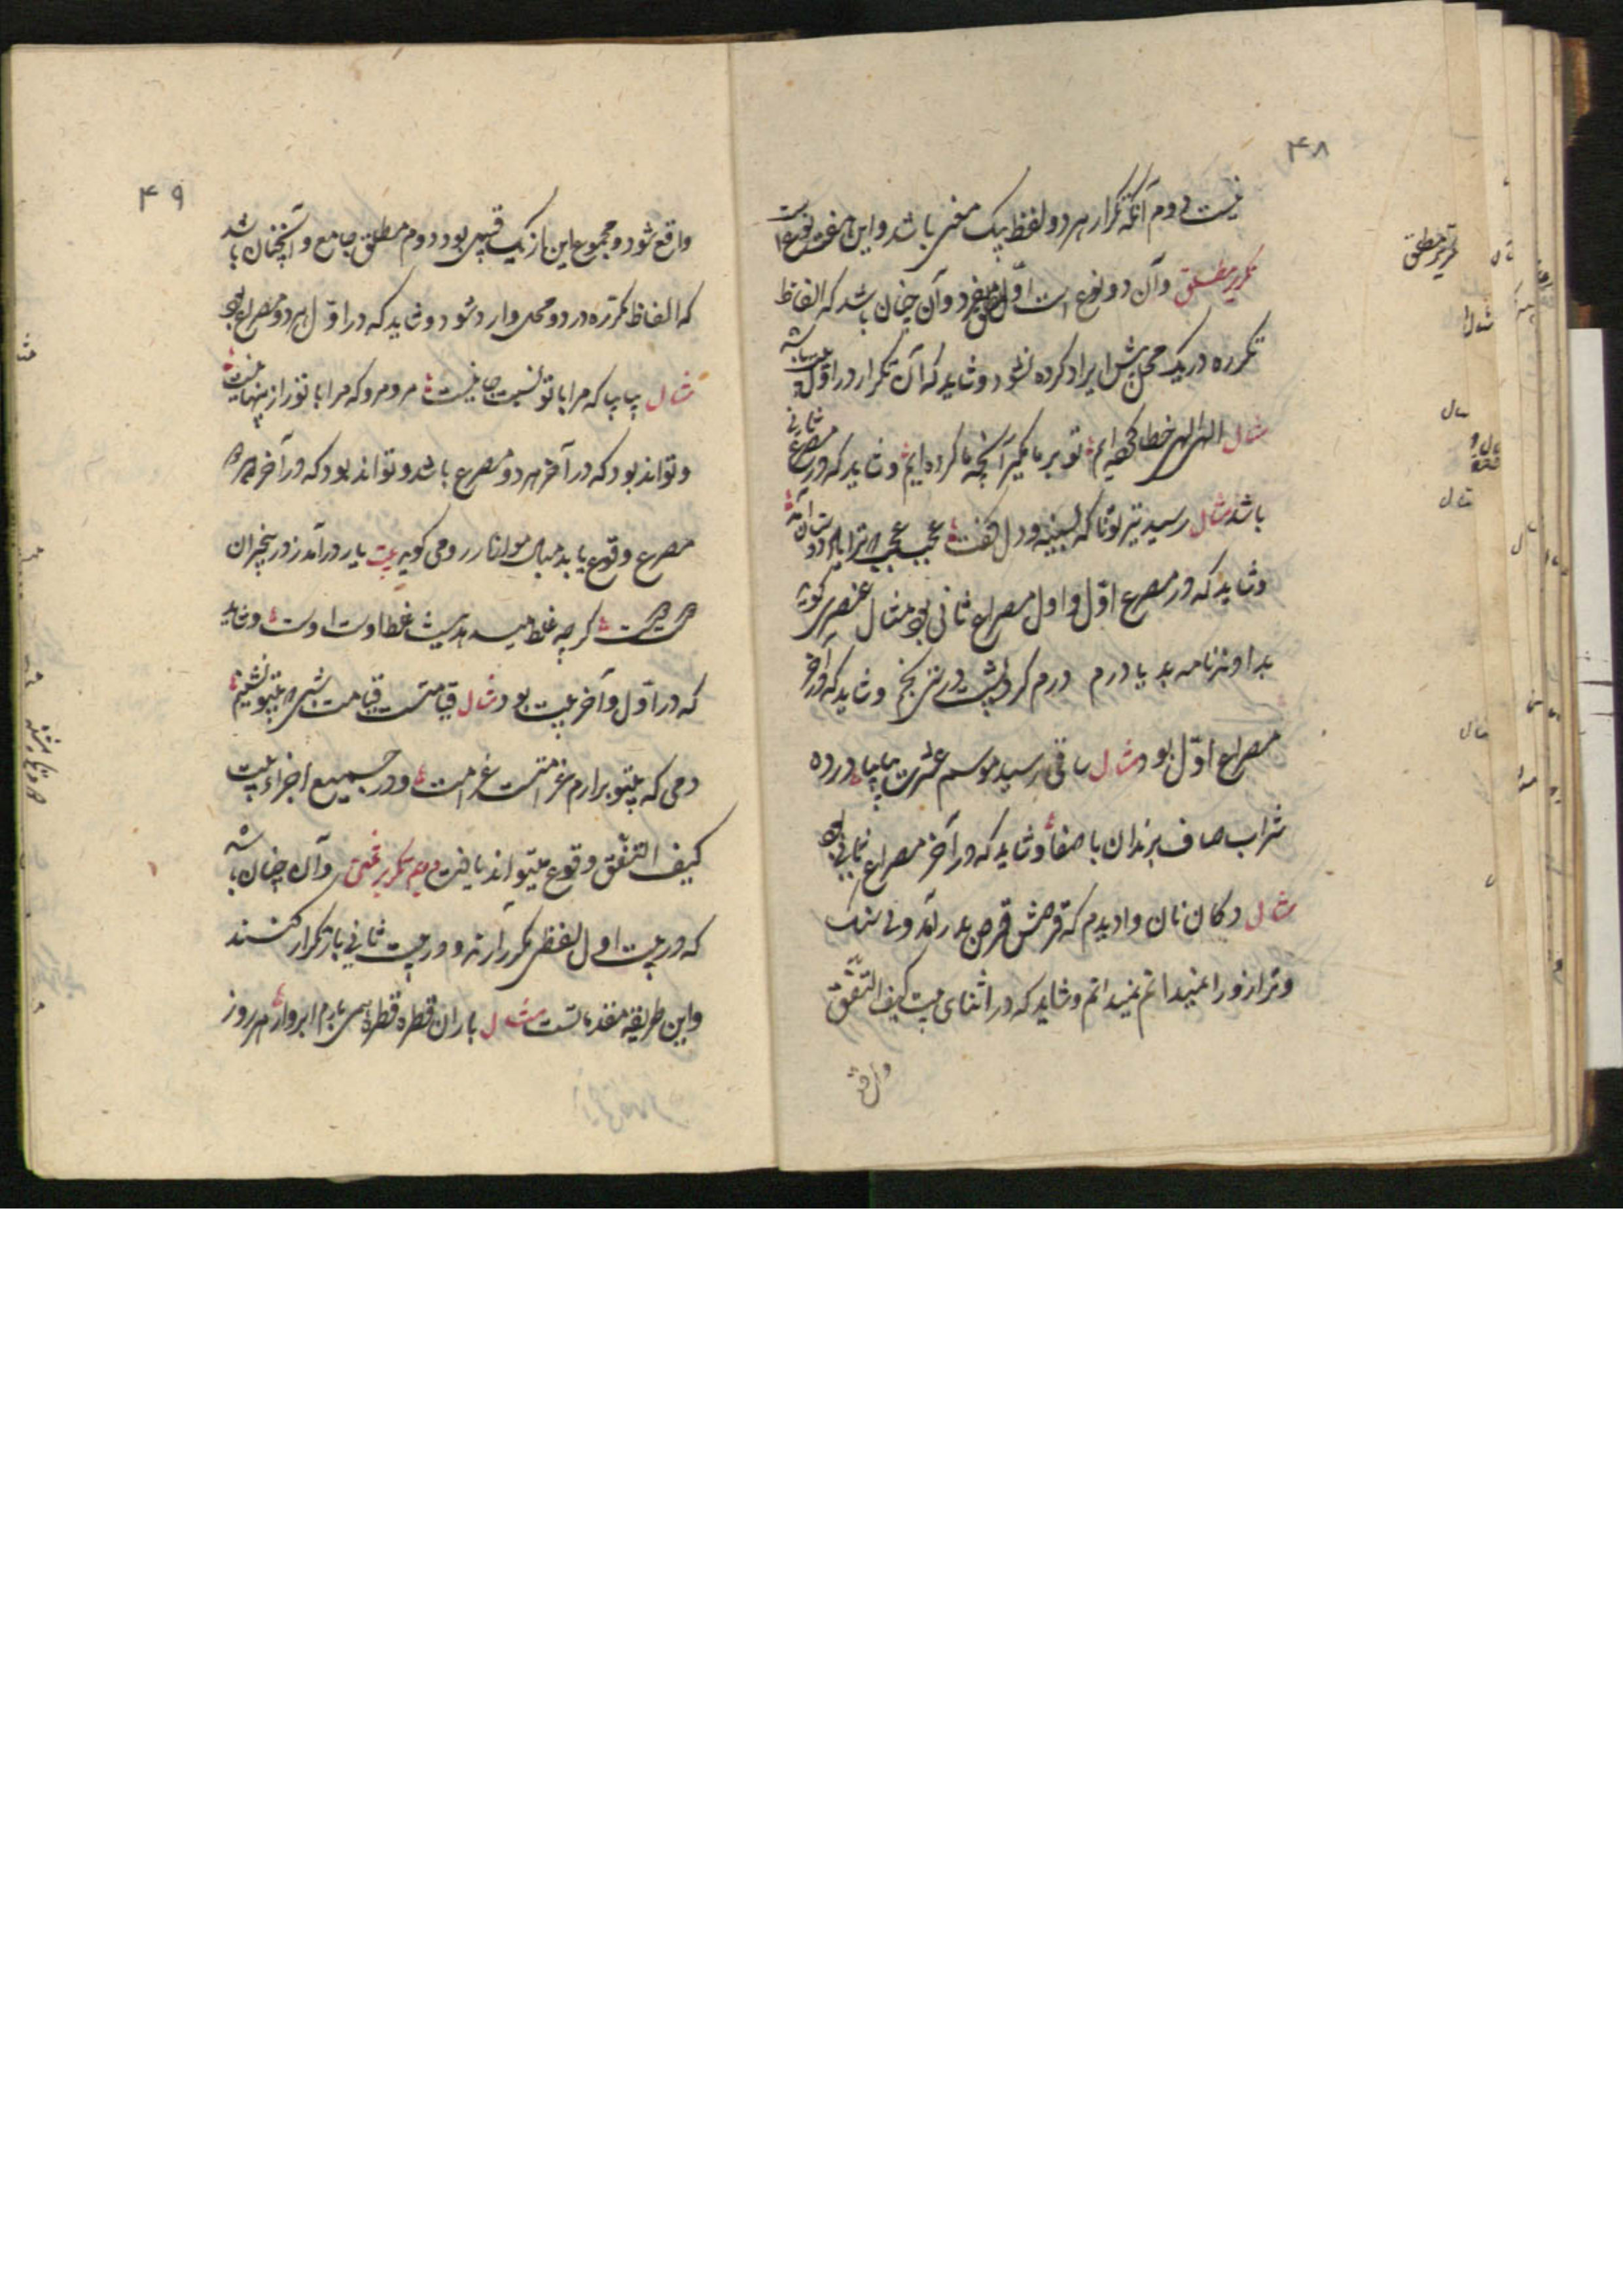 ۴۸
نیست دوم آنکه تکرار هر دو لفظ بیک معنی باشد و این هفت نوعست
تکریر مطلق وآن دو نوع است اوّل مطلق مفرد وآن چنان باشد که الفاظ
تکریر مطلق
مکرره در یک محل بیش ایراد کرده نشود و شاید که آن تکرار در اوّل بیت باشد
مثال الهی الهی خطا کرده ایم تو بر ما مگیر آنچه ما کرده ایم و شاید که در مصرع ثانی
باشد مثال رسید تیر تو ناگه بسینه و دل گفت عجب عجب که ترا یاد دوستان آمد
و شاید که در مصرع اوّل و اول مصراع ثانی بود مثال عنصری گوید
بداوند نامه بد یا درم درم کرد پشت در رنج و شاید که در آخر
مصراع اوّل بود مثال ساقی رسید موسم عشرت بیا بیا در ده
شراب صاف برندان با صفا و شاید که در آخر مصراع ثانی بود
مثال دکان نان وا دیدم که قرصش قرص بدر آمد ولی سنک
وترازو را نمیدانم نمیدانم و شاید که در اثنای بیت کیف التّفق
واقع
۴۹
واقع شود و مجموع این از یک قبیل بود دوم مطلق جامع و آنچنان باشد
که الفاظ مکرّره در دو محل وارد شود و شاید که در اوّل هر دو مصراع بود
مثال بیا بیا که مرا با تو نسبت جانیست مرو مرو که مرا با تو راز پنهانیست
و تواند بود که در آخر هر دو مصرع باشد و تواند بود که در آخر هر
مصرع وقوع یابد مثال مولانا رومی گوید بیت یار درآمد ز در بیخبران
کرچه غلط میدهد نیست غلط اوست اوست و شاید
که در اوّل و آخر بیت بود مثال قیامتست قیامت شبی که بیتو نشینم
دمی که بیتو برارم غرامتست غرامت و در جمیع اجزاء بیت
کیف التّفق وقوع میتواند یافت دوم تکریر محقق وآن چنان باشد
که در بیت اول لفظی مکرر آرند و در بیت ثانی باز تکرار کنند
و این طریقه متقدمانست مثال باران قطره قطره همی بارم ابروار هر روز